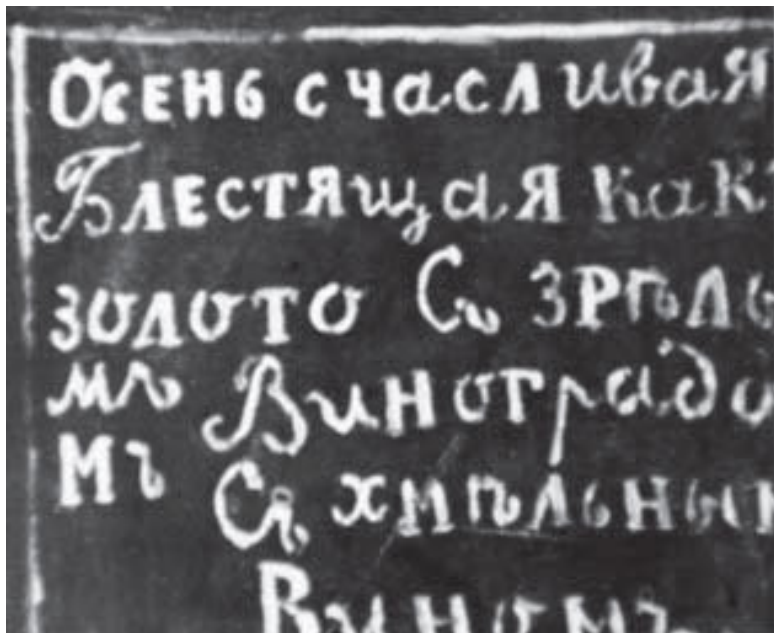 Осень счасливая
Блестящая как
золото Съ зрѣлы
мъ Виноградо
мъ
Съ хмѣльным
Виномъ